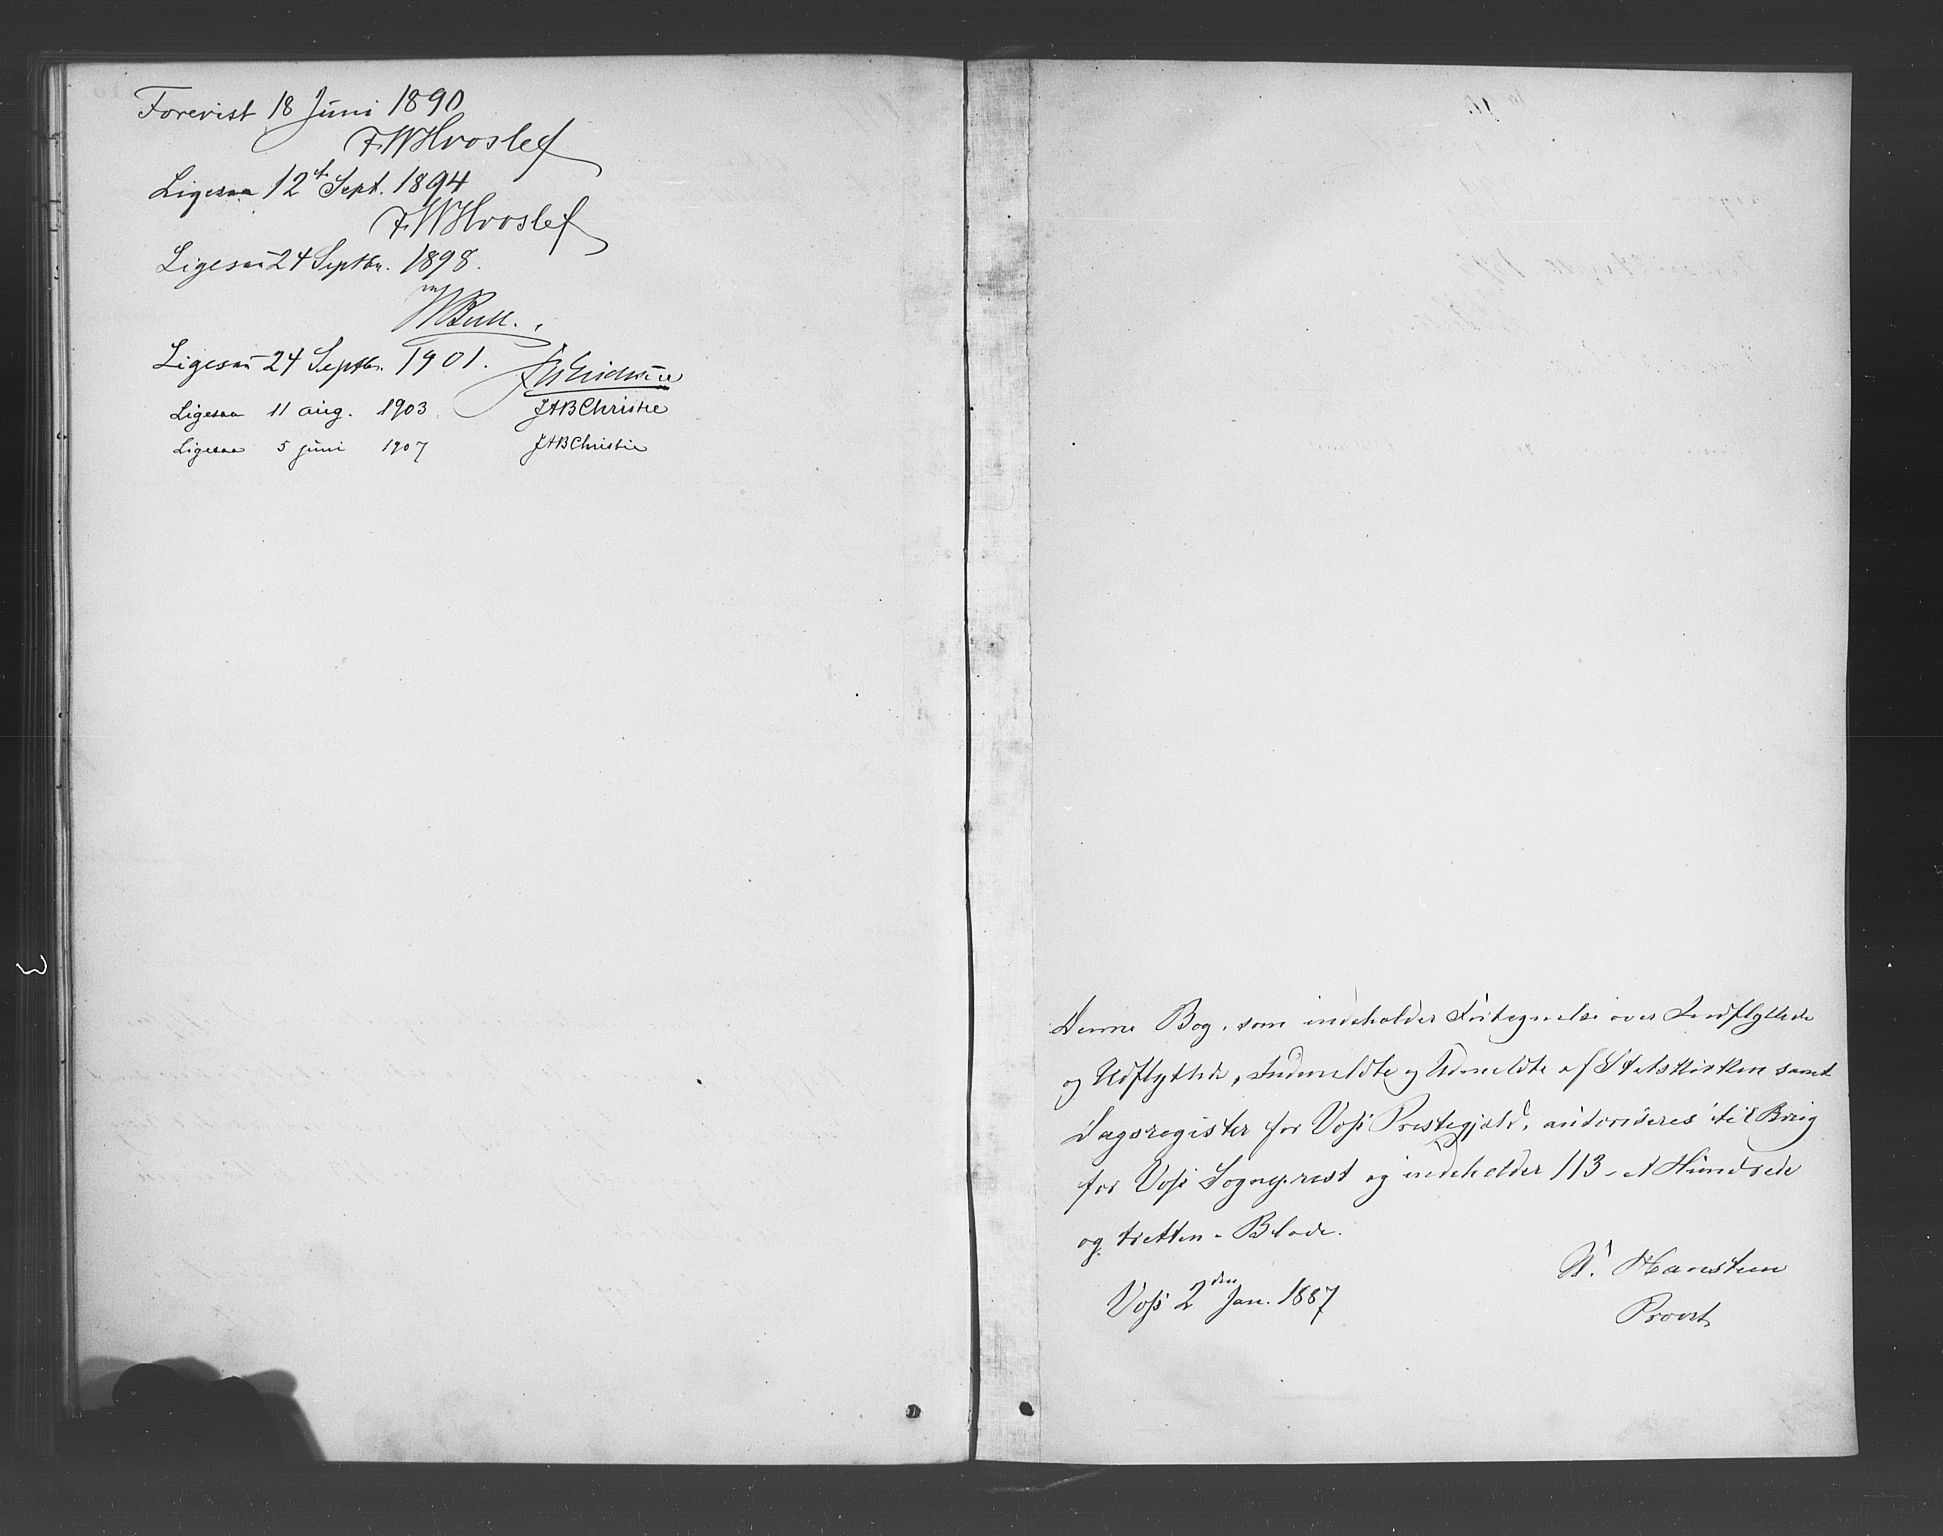 Forevist 18 Juni 1890
F.W Hvoslef
Ligesaa 12t Sept. 1894
F.W Hvoslef
Ligesaa 24 Septbr. 1898.
W Bull.
Ligesaa 24 Septbr. 1901.
Ligesaa 11 aug. 1903 JAB Christie
Ligesaa 5 juni 1907 JAB Christie
Denne Bog, som indeholder Fortegnelse over Indflyttede
og Udflyttede, Indmeldte og Udmeldte af Statskirken samt
Dagsregister for Voss Prestegjæld, autoriseres til Brug
for Voss Sogneprest og indeholder 113 - et Hundrede
og tretten - Blade.
Voss 2den Jan. 1887
Hansteen
Provst